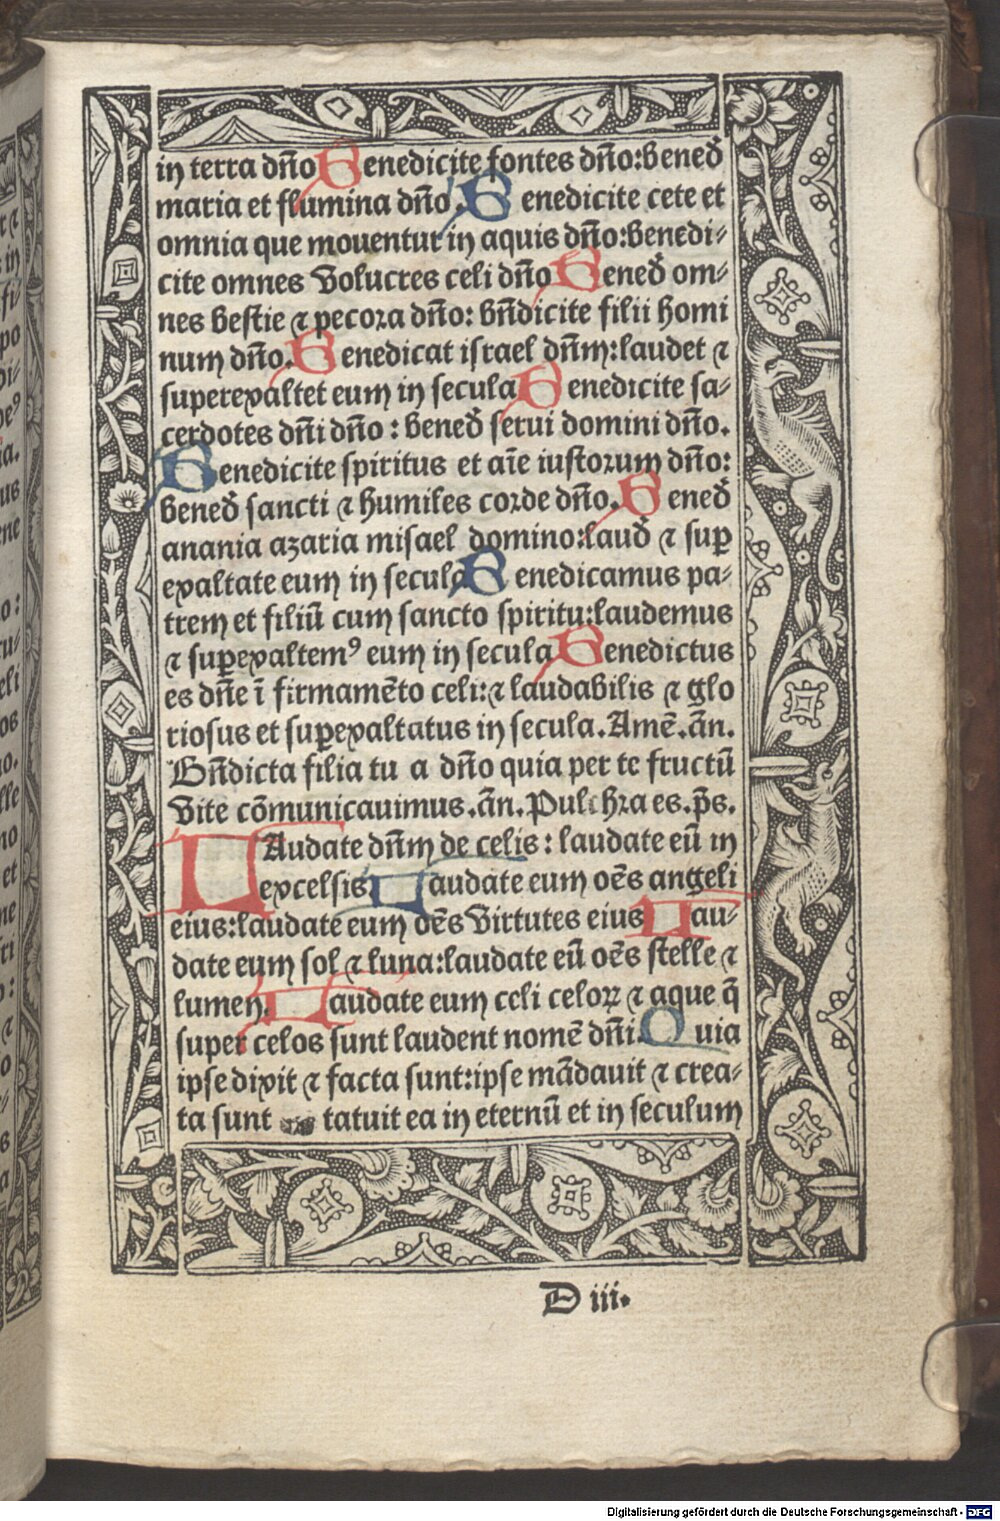 in terra dño Benedicite fontes dño:bened̃
maria et flumina dño. Benedicite cete et
omnia que mouentur in aquis dño:benedi-
cite omnes volucres celi dño Bened̃ om-
nes bestie ⁊ pecora dño: bñdicite filii homi
num dño. Benedicat israel dñm:laudet ⁊
superexaltet eum in secula Benedicite sa-
cerdotes dñi dño : bened̃ serui domini dño.
Benedicite spiritus et aĩe iustorum dño:
bened̃ sancti ⁊ humiles corde dño. Bened̃
anania azaria misael domino:laud̃ ⁊ suꝑ
exaltate eum in secula Benedicamus pa-
trem et filiũ cum sancto spiritu:laudemus
⁊ suꝑexaltemꝰ eum in secula Benedictus
es dñe ĩ firmamẽto celi:⁊ laudabilis ⁊ glo
riosus et suꝑexaltatus in secula. Amẽ. ãn.
Bñdicta filia tu a dño quia per te fructũ
vite cõmunicauimus. ãn. Pulchra es. p̃s.
LAudate dñm de celis: laudate eũ in
excelsis Laudate eum oẽs angeli
eius:laudate eum oẽs virtutes eius Lau-
date eum sol ⁊ luna:laudate eũ oẽs stelle ⁊
lumen. Laudate eum celi celoꝝ ⁊ aque q̃
super celos sunt laudent nomẽ dñi. Quia
ipse dixit ⁊ facta sunt:ipse mãdauit ⁊ crea-
ta sunt tatuit ea in eternũ et in seculum
D iii.
Digitalisierung gefördert durch die Deutsche Forschungsgemeinschaft - DFG